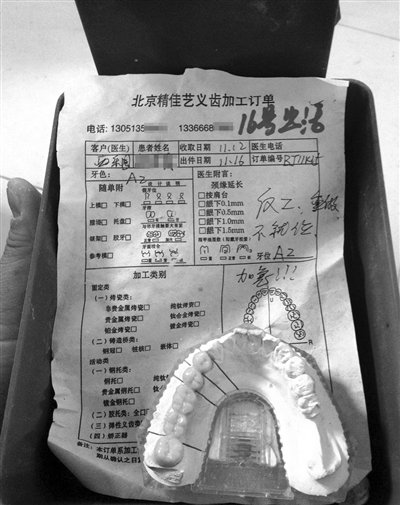 北京精佳艺义齿加工订单
电话:1305135 1336668
16号出活
客户(医生) 患者姓名 收取日期 11.12 医生电话
出件日期 11.16 订单编号
牙色: A2
随单附 设计说明
医生附言:
颈缘延长
按肩台
龈下0.1mm
龈下0.5mm
龈下1.0mm
龈下1.5mm
上模 下模
蜡堤 托盘
颌架 咬牙
参考模
反工:重做
不就位!
牙位 A2
加急!!!
加工类别
固定类
(一)烤瓷类
非贵金属烤瓷 纯钛烤瓷
贵金属烤瓷 钛合金烤瓷
铂金烤瓷 镀金烤瓷
(二)铸造桩类:
钢冠 桩核 嵌体
活动类
(一)钢托类
钢托 纯钛
贵金属钢托 钛合
镀金钢托
(二)胶托类:全口
(三)弹性义齿
(四)矫正器
R
备注:本订单系加工
期从确认之日